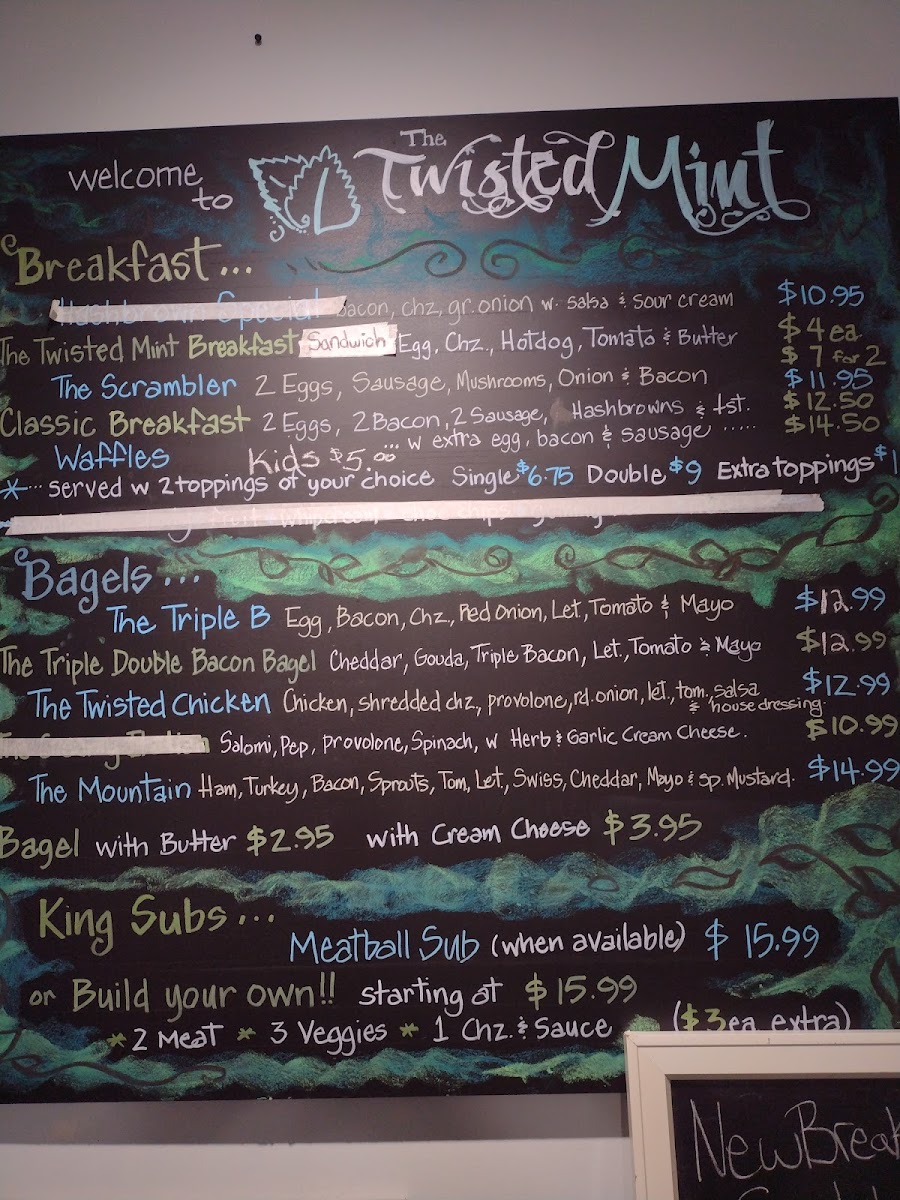 welcome to The Twisted Mint
Breakfast...
Hashbrown Special bacon, chz, gr. onion w. salsa & sour cream $10.95
The Twisted Mint Breakfast Sandwich Egg, Chz., Hotdog, Tomato & Butter $4 ea
$7 for 2
The Scrambler 2 Eggs, Sausage, Mushrooms, Onion & Bacon $11.95
Classic Breakfast 2 Eggs, 2 Bacon, 2 Sausage, Hashbrowns & tst. $12.50
... w extra egg, bacon & sausage ..... $14.50
Waffles Kids $5.00
*... served w 2 toppings of your choice Single $6.75 Double $9 Extra toppings $1
Bagels...
The Triple B Egg, Bacon, Chz., Red Onion, Let., Tomato & Mayo $12.99
The Triple Double Bacon Bagel Cheddar, Gouda, Triple Bacon, Let., Tomato & Mayo $12.99
The Twisted Chicken Chicken, shredded chz, provolone, rd. onion, let., tom., salsa $12.99
& house dressing.
Salomi, Pep, Provolone, Spinach, w Herb & Garlic Cream Cheese. $10.99
The Mountain Ham, Turkey, Bacon, Sprouts, Tom, Let., Swiss, Cheddar, Mayo & Sp. Mustard. $14.99
Bagel with Butter $2.95 with Cream Cheese $3.95
King Subs...
Meatball Sub (when available) $15.99
or Build your own!! starting at $15.99
* 2 Meat * 3 Veggies * 1 Chz. & Sauce ($3ea extra)
New Break